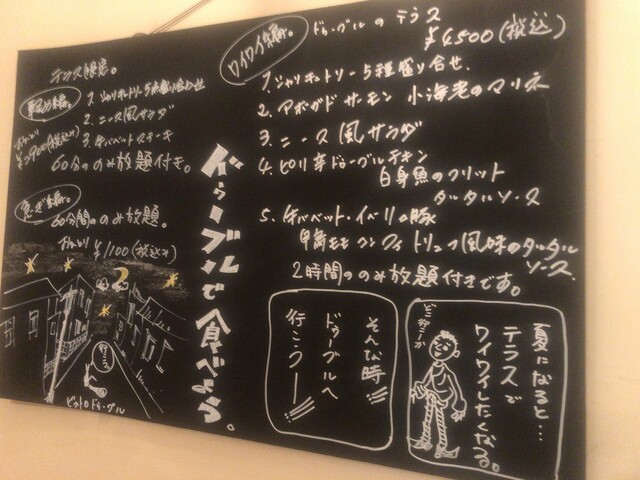 テラス限定。
1. シャリキュトリー5種盛り合わせ
2. ニース風サラダ
3. 牛バベットステーキ
¥2900(税込)
60分ののみ放題付き。
60分間ののみ放題。
¥1100(税込)
ビストロドゥーブル
ドゥーブルで食べよう。
ワイワイ
ドゥーブルのテラス
¥4500(税込)
1. シャリキュトリー5種盛り合せ
2. アボガドサーモン 小海老のマリネ
3. ニース風サラダ
4. ピリ辛ドゥーブルチキン
白身魚のフリット
タルタルソース
5. 牛バベット・イベリコ豚
骨付モモコンフィ トリュフ風味のタルタル
ソース
2時間ののみ放題付きです。
夏になると…
テラスで
ワイワイしたくなる。
どこ行こっか
そんな時!!
ドゥーブルへ
行こうー!!